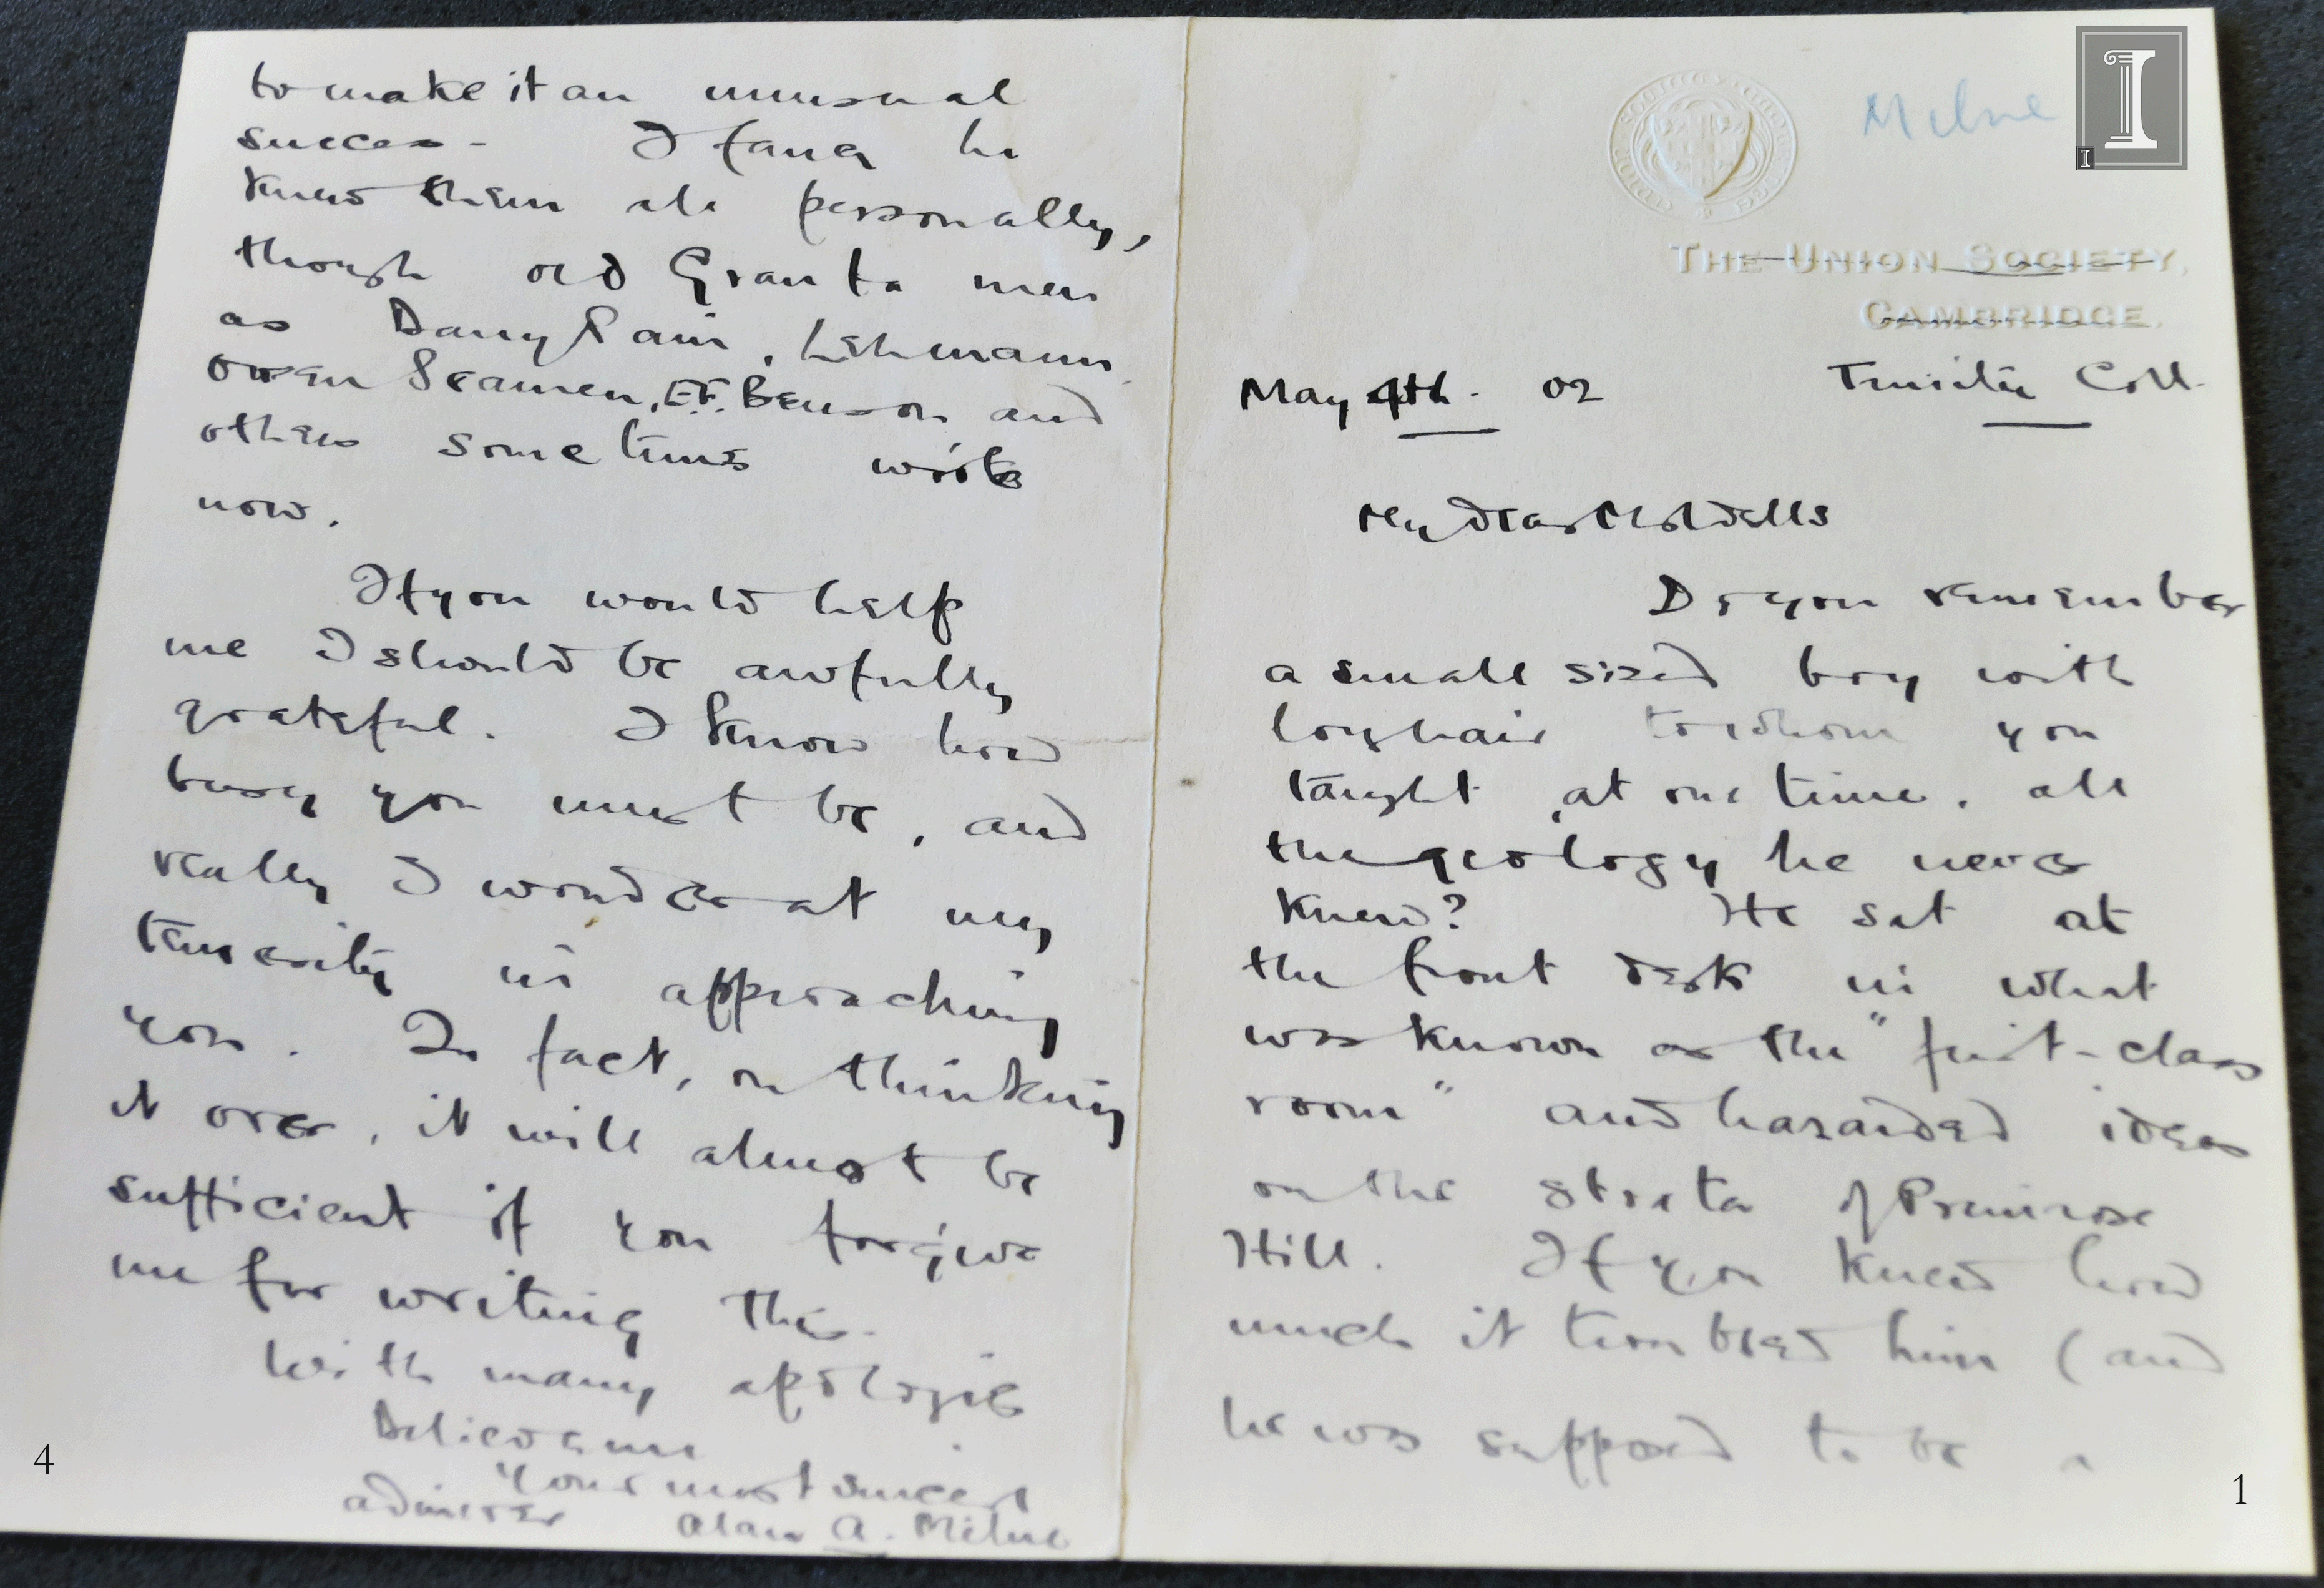 Milne
THE UNION SOCIETY,
CAMBRIDGE.
Trinity Coll.
May 4th. 02
My dear Mr Wells
Do you remember
a small sized boy with
long hair to whom you
taught, at one time, all
the geology he never
knew? He sat at
the front desk in what
was known as the "first-class
room" and hazarded ideas
on the strata of Primrose
Hill. If you knew how
much it troubled him (and
he was supposed to be a
1
to make it an unusual
success. I fancy he
knows them all personally,
though old Granta men
as Barry Pain, Lehmann,
Owen Seaman, E.F. Benson and
others sometimes write
now.
If you would help
me I should be awfully
grateful. I know how
busy you must be, and
really I wonder at my
temerity in approaching
you. In fact, on thinking
it over, it will almost be
sufficient if you forgive
me for writing this.
With many apologies
Believe me
Your most sincere
admirer Alan A. Milne
4